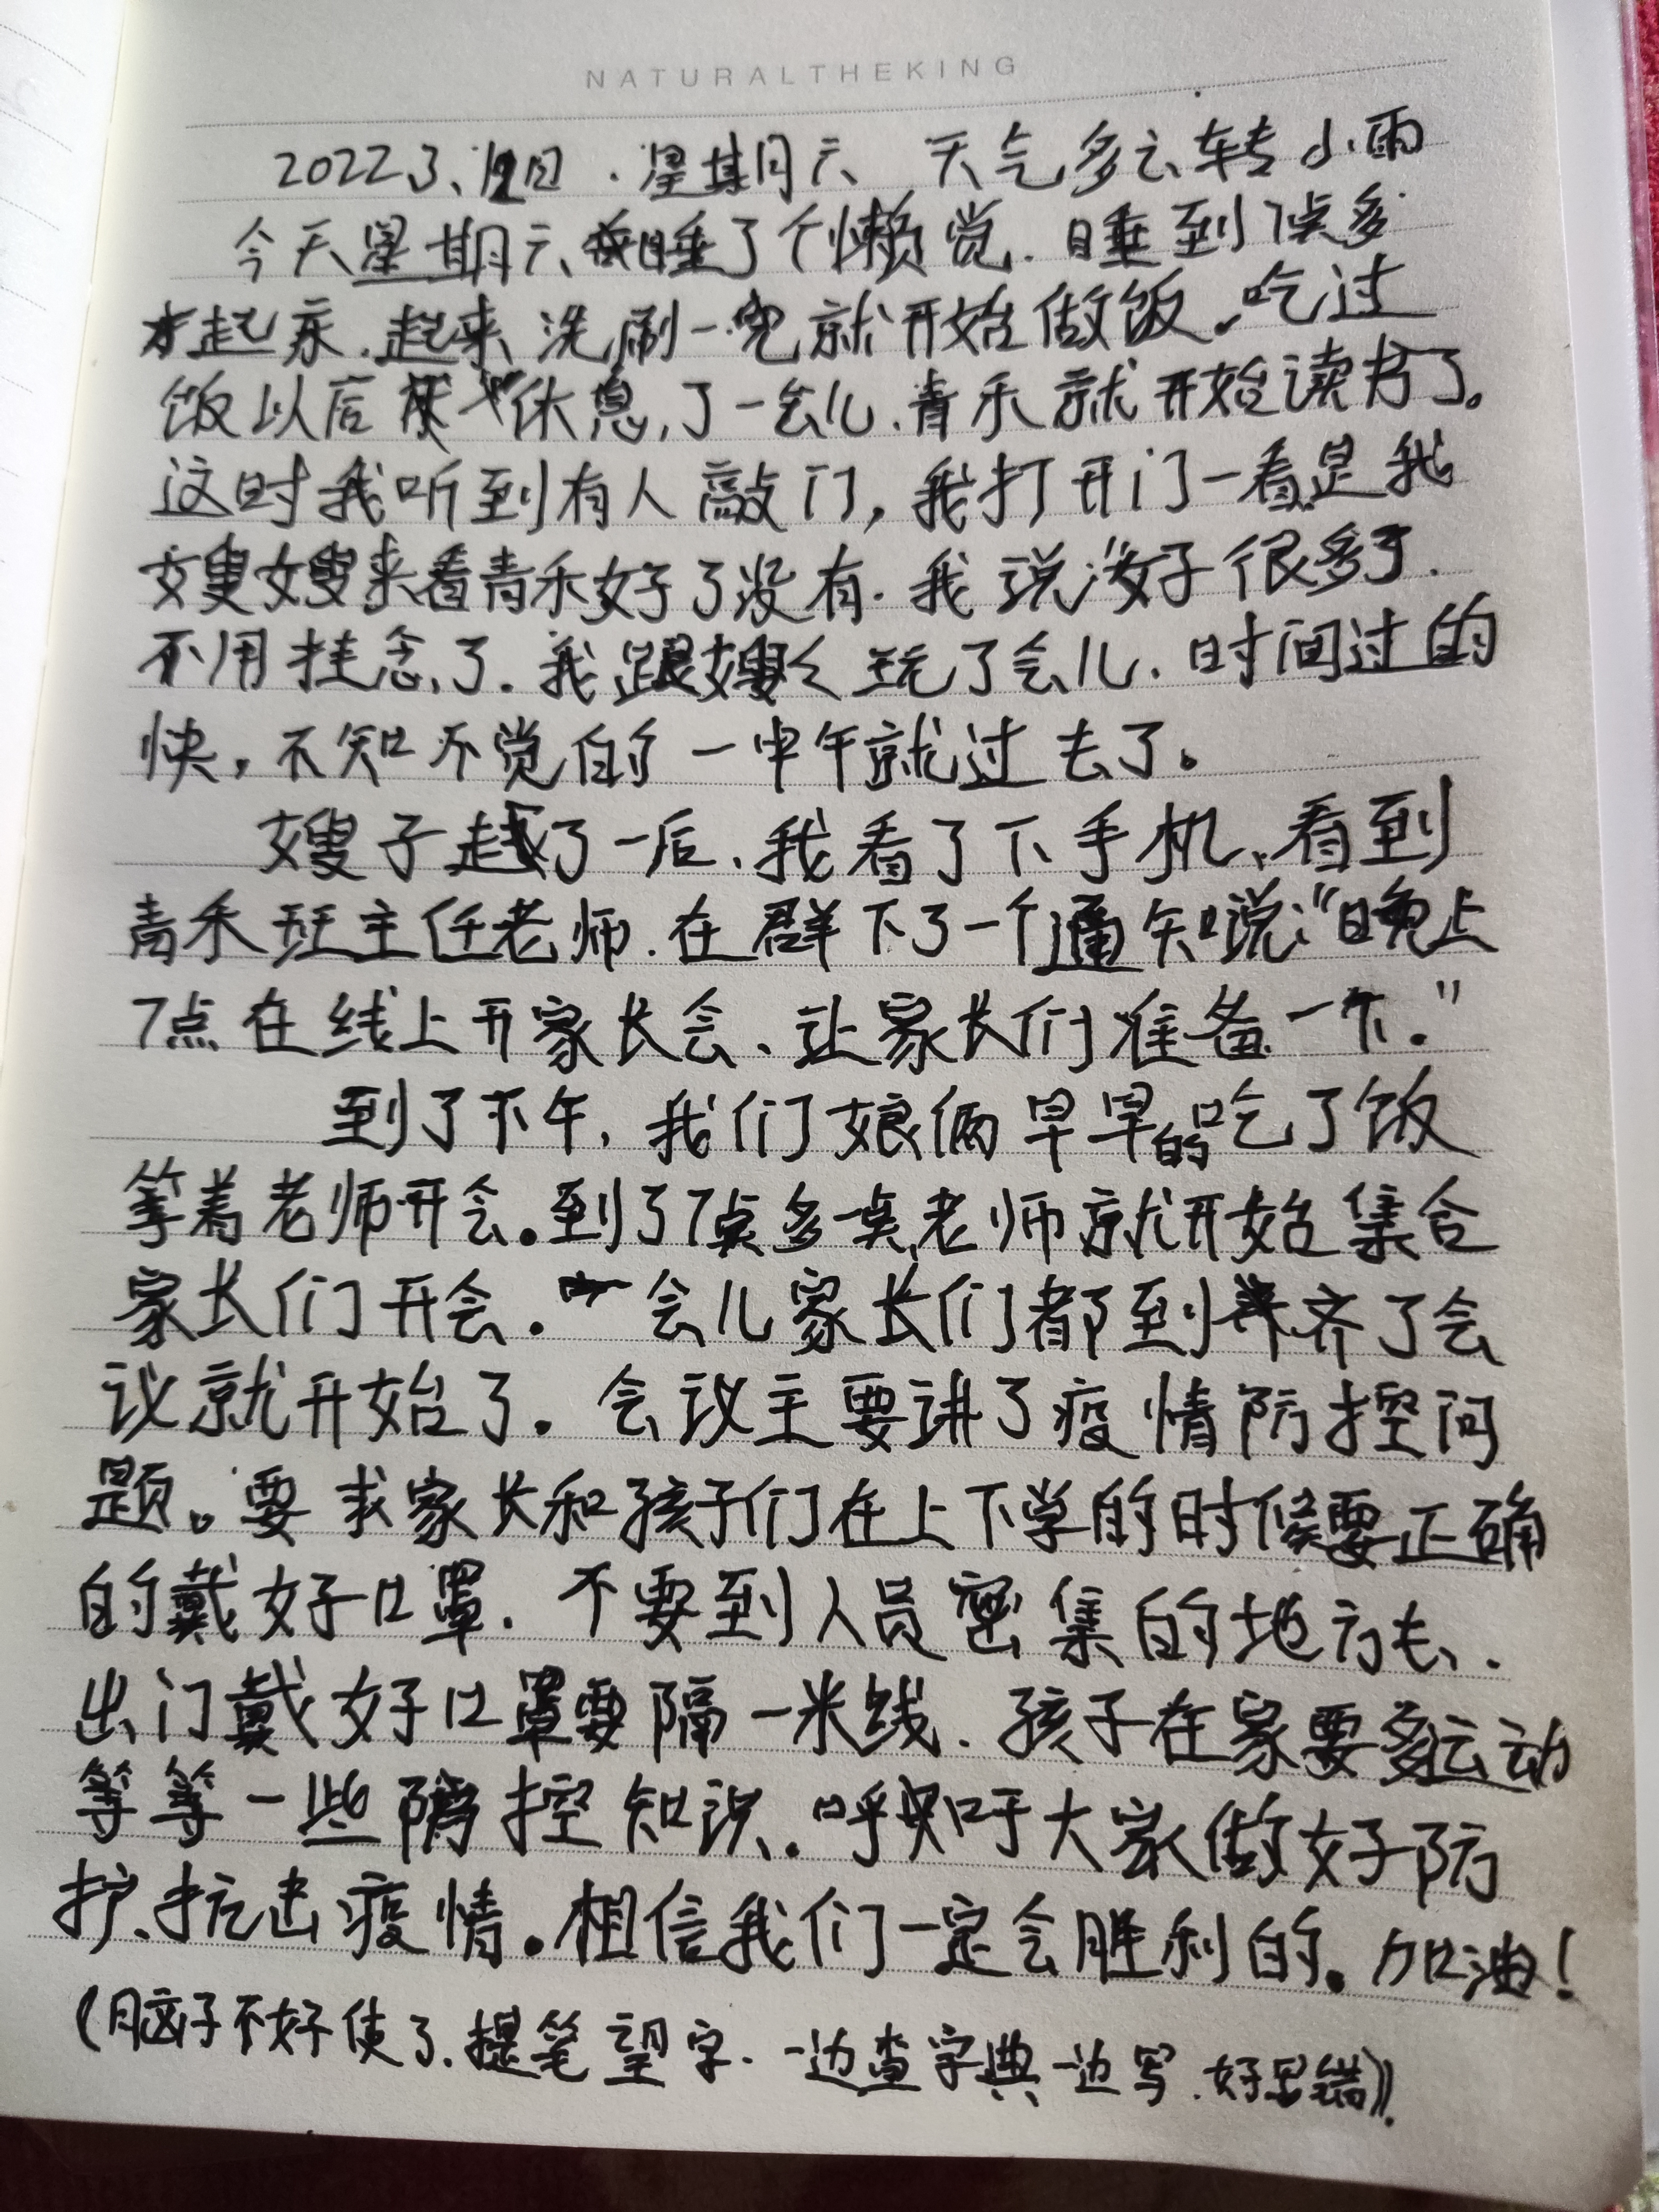 NATURALTHEKING
2022 3、12日 . 星期六 天气多云转小雨
今天星期六、我睡了个懒觉. 睡到7点多
才起床. 起来洗刷一完就开始做饭. 吃过
饭以后 休息了一会儿. 青禾就开始读书了。
这时我听到有人敲门, 我打开门一看是我
嫂嫂来看青禾好了没有. 我说:“好很多了.
不用挂念了. 我跟嫂〈玩了会儿. 时间过的
快, 不知不觉的一中午就过去了。
嫂子走了一后、我看了下手机、看到
青禾班主任老师. 在群下了一个通知说:“晚上
7点在线上开家长会、让家长们准备一下.”
到了下午, 我们娘俩早早的吃了饭
等着老师开会。到了7点多一点老师就开始集合
家长们开会. 一会儿家长们都到齐了会
议就开始了. 会议主要讲了疫情防控问
题。要求家长和孩子们在上下学的时候要正确
的戴好口罩. 不要到人员密集的地方去、.
出门戴好口罩要隔一米线. 孩子在家要多运动
等等一些防控知识. 呼吁大家做好防
护、抗击疫情. 相信我们一定会胜利的. 加油!
(脑子不好使了. 提笔望字. 一边查字典一边写.好多错)).